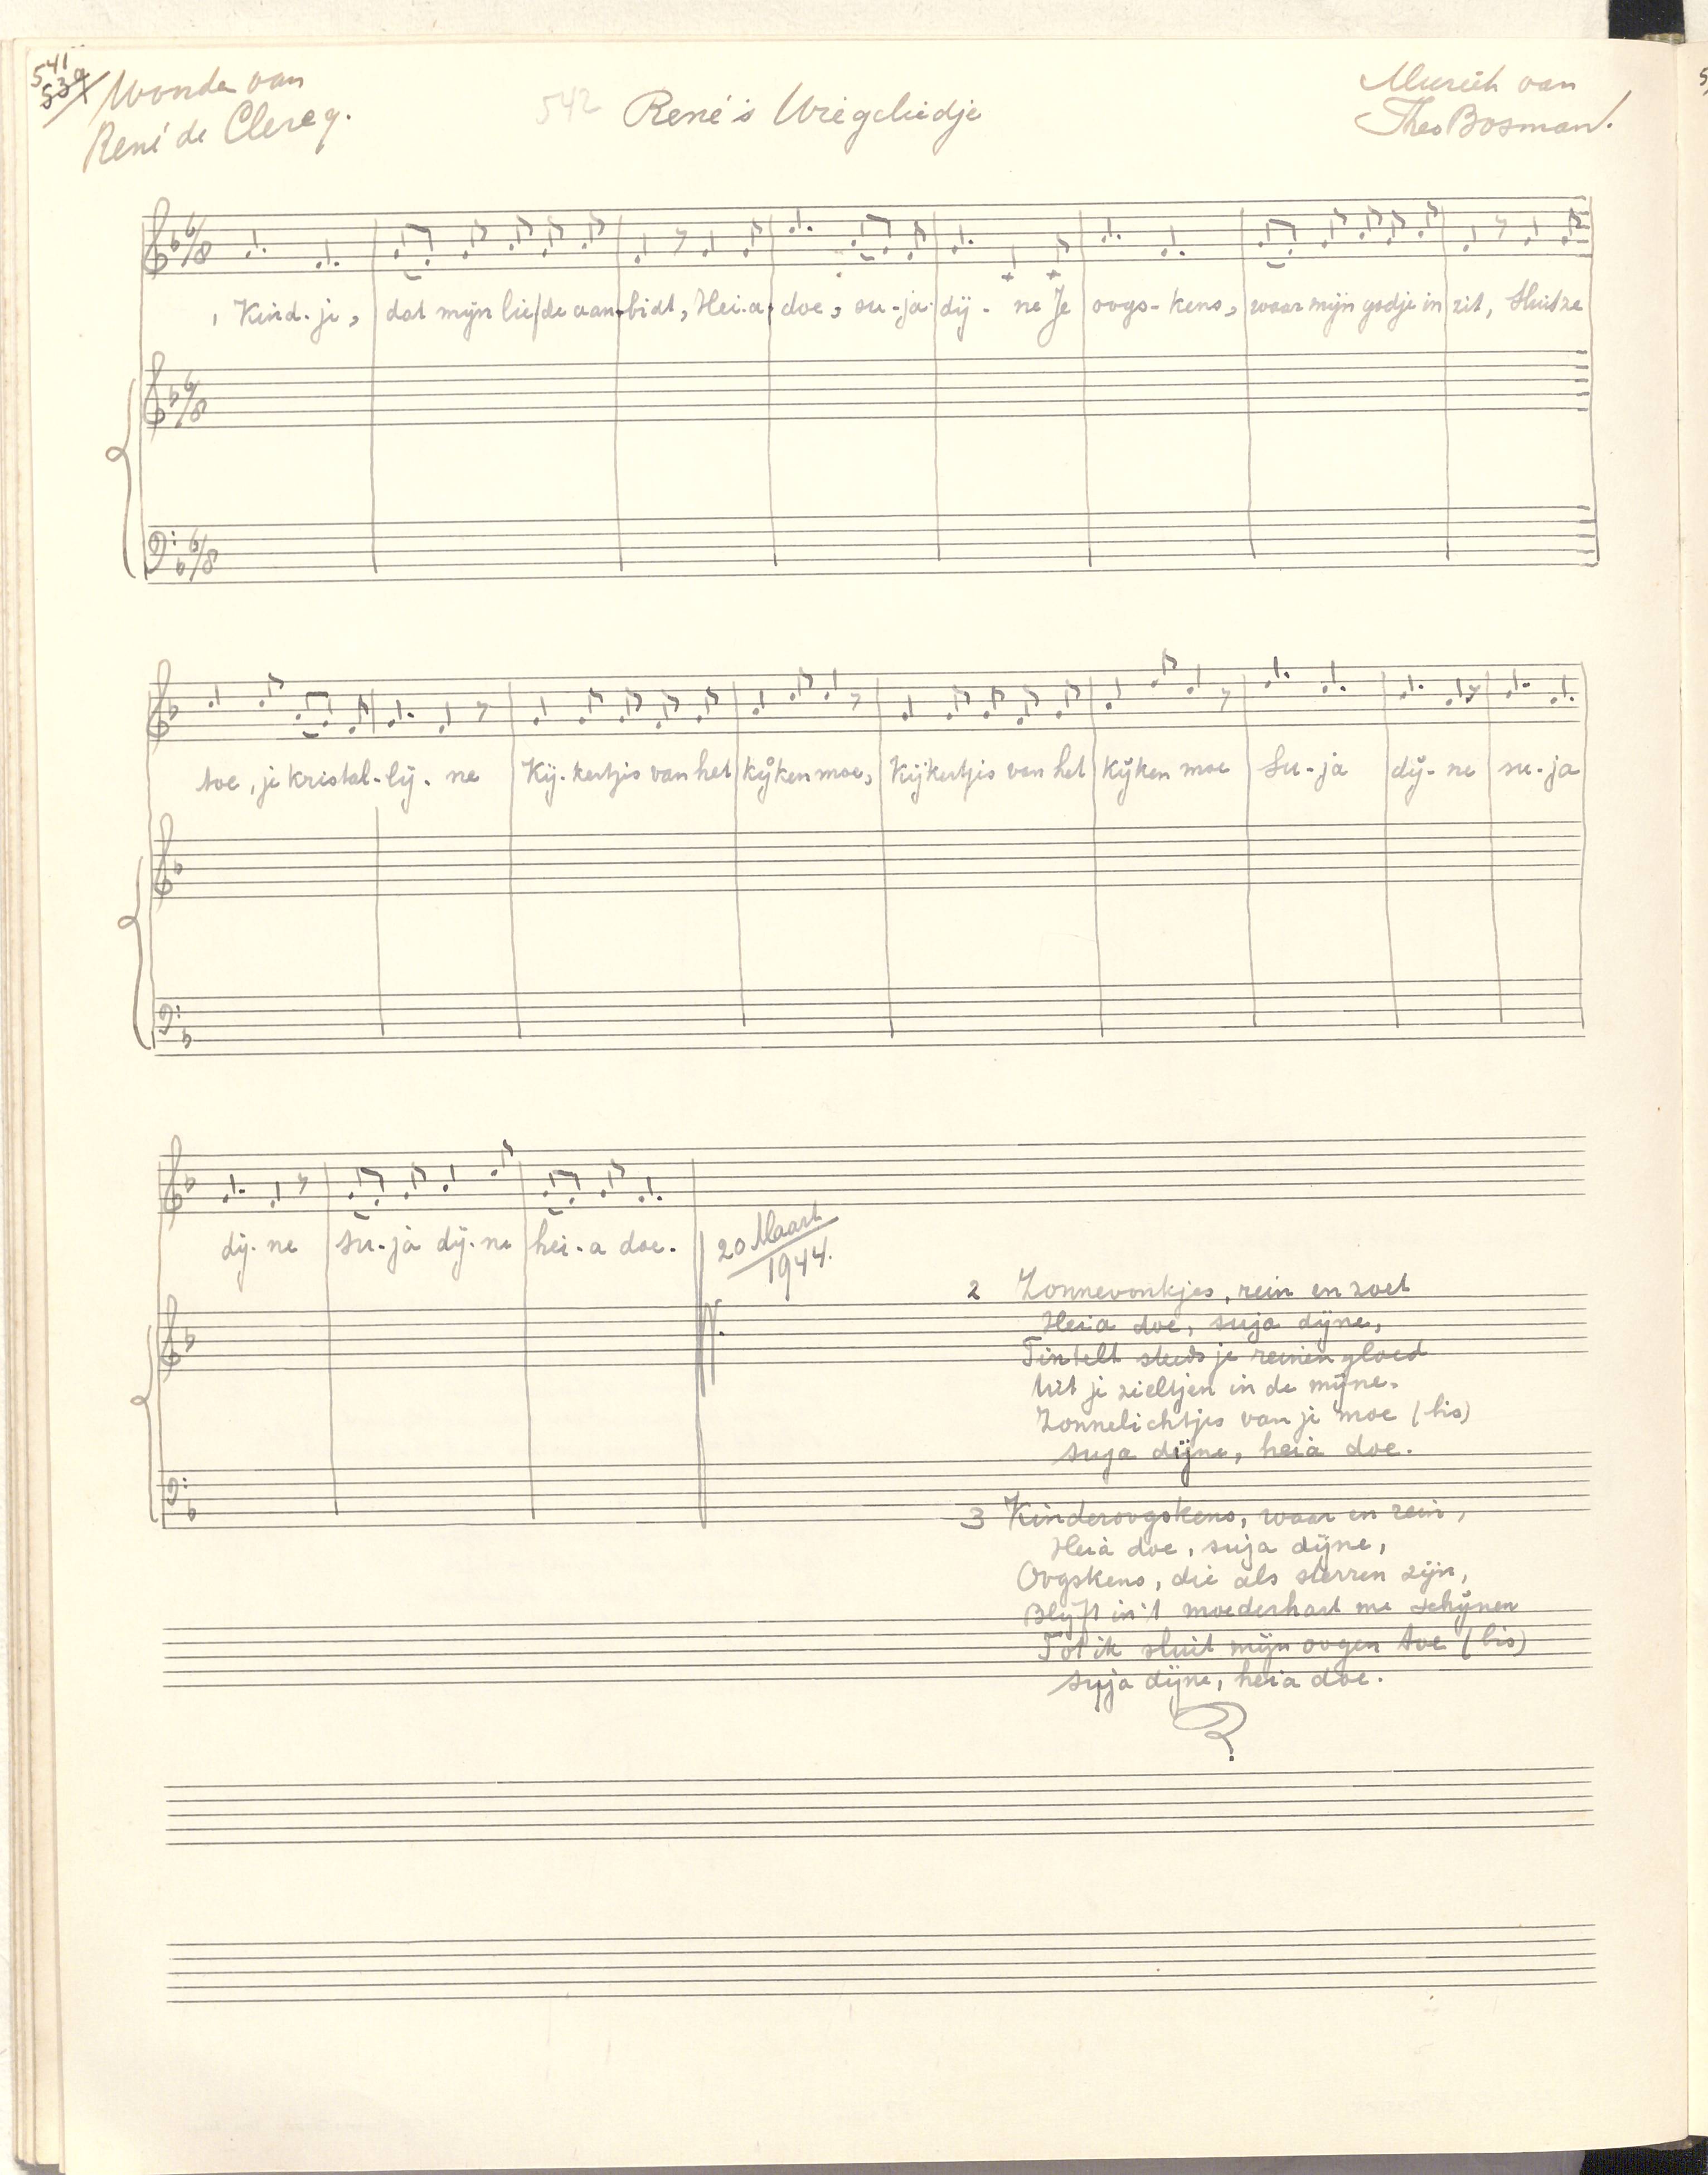 541
539
Woorden van
René de Clercq.
542 René's Wiegeliedje
Muziek van
Theo Bosman.
6/8
Kind-je, dat mijn liefde aan-bidt, Hei-a-doe, su-ja-dij-ne Je oogs-kens, waar mijn godje in zit, Sluit ze
6/8
6/8
toe, je kristal-lij-ne Kij-kertjes van het kijken moe, Kijkertjes van het kijken moe Su-ja dij-ne su-ja
dij-ne su-ja dij-ne hei-a doe.
20 Maart
1944.
2 Zonnevonkjes, rein en zoet
Heia doe, suja dijne,
Tintelt steeds je reinen gloed
Uit je zieltjen in de mijne.
Zonnelichtjes van je moe (bis)
suja dijne, heia doe.
3 Kinderoogskens, waar en rein,
Heia doe, suja dijne,
Oogskens, die als sterren zijn,
Blijft in 't moederhart me schijnen
Tot ik sluit mijn oogen toe (bis)
suja dijne, heia doe.